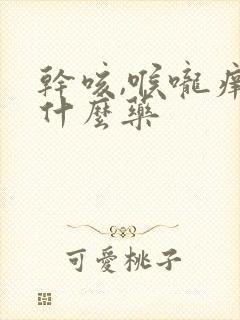 幹咳,喉嚨癢
什麼藥
可愛桃子